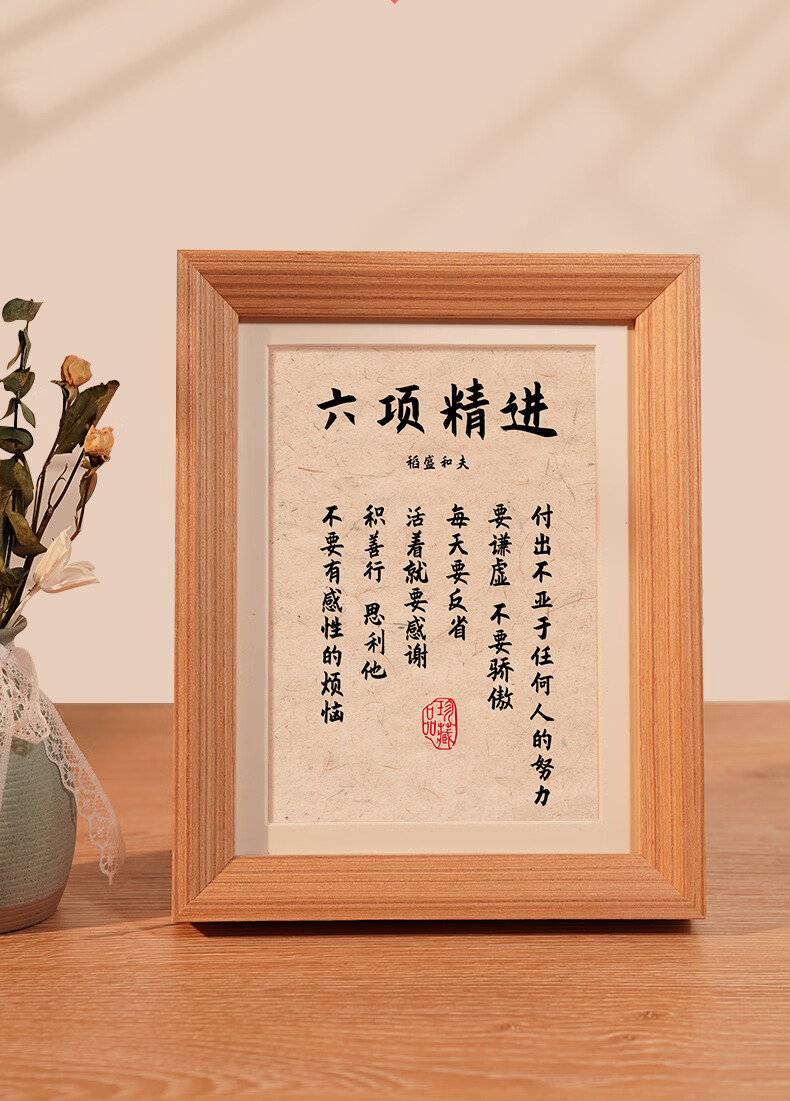 六项精进
稻盛和夫
付出不亚于任何人的努力
要谦虚 不要骄傲
每天要反省
活着就要感谢
积善行 思利他
不要有感性的烦恼
珍藏品